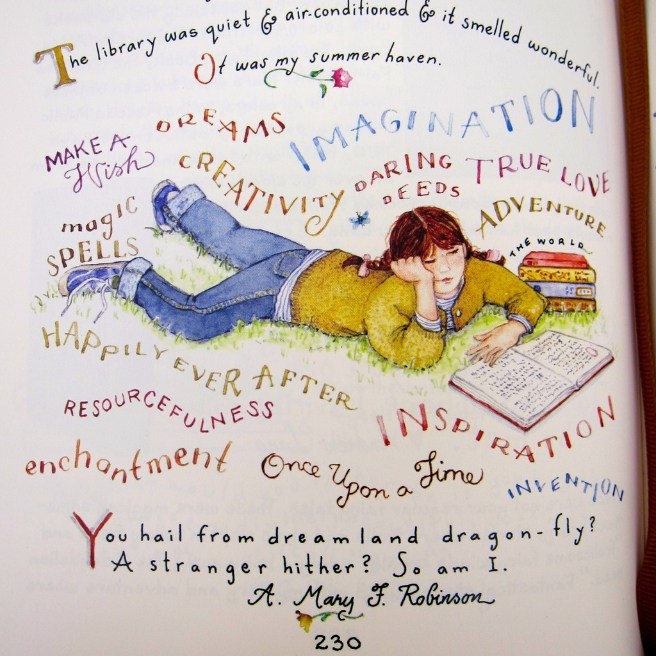 The library was quiet & air-conditioned & it smelled wonderful.
It was my summer haven.
DREAMS
IMAGINATION
MAKE A
Wish
CREATIVITY
DARING
DEEDS
TRUE LOVE
magic
SPELLS
ADVENTURE
THE WORLD
HAPPILY EVER AFTER
RESOURCEFULNESS
INSPIRATION
enchantment
Once Upon a Time
INVENTION
You hail from dreamland dragon-fly?
A stranger hither? So am I.
A. Mary F. Robinson
230